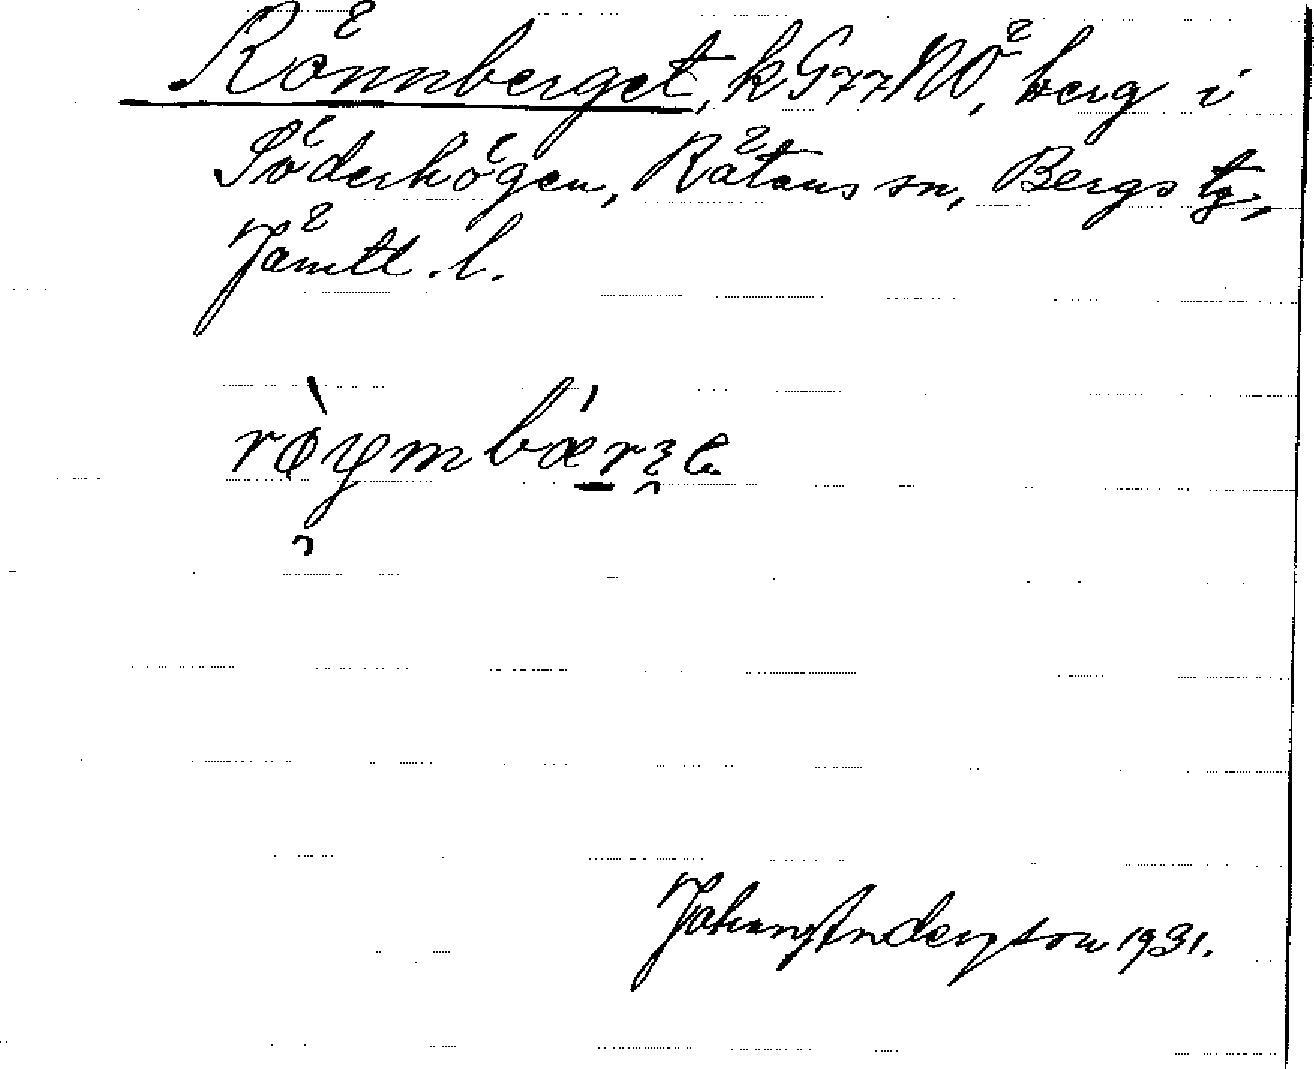 Rönnberget, k G77NÖ, berg i
Söderhögen, Rätans sn, Bergs tg,
Jämtl. l.
Johan Anderzson 1931.